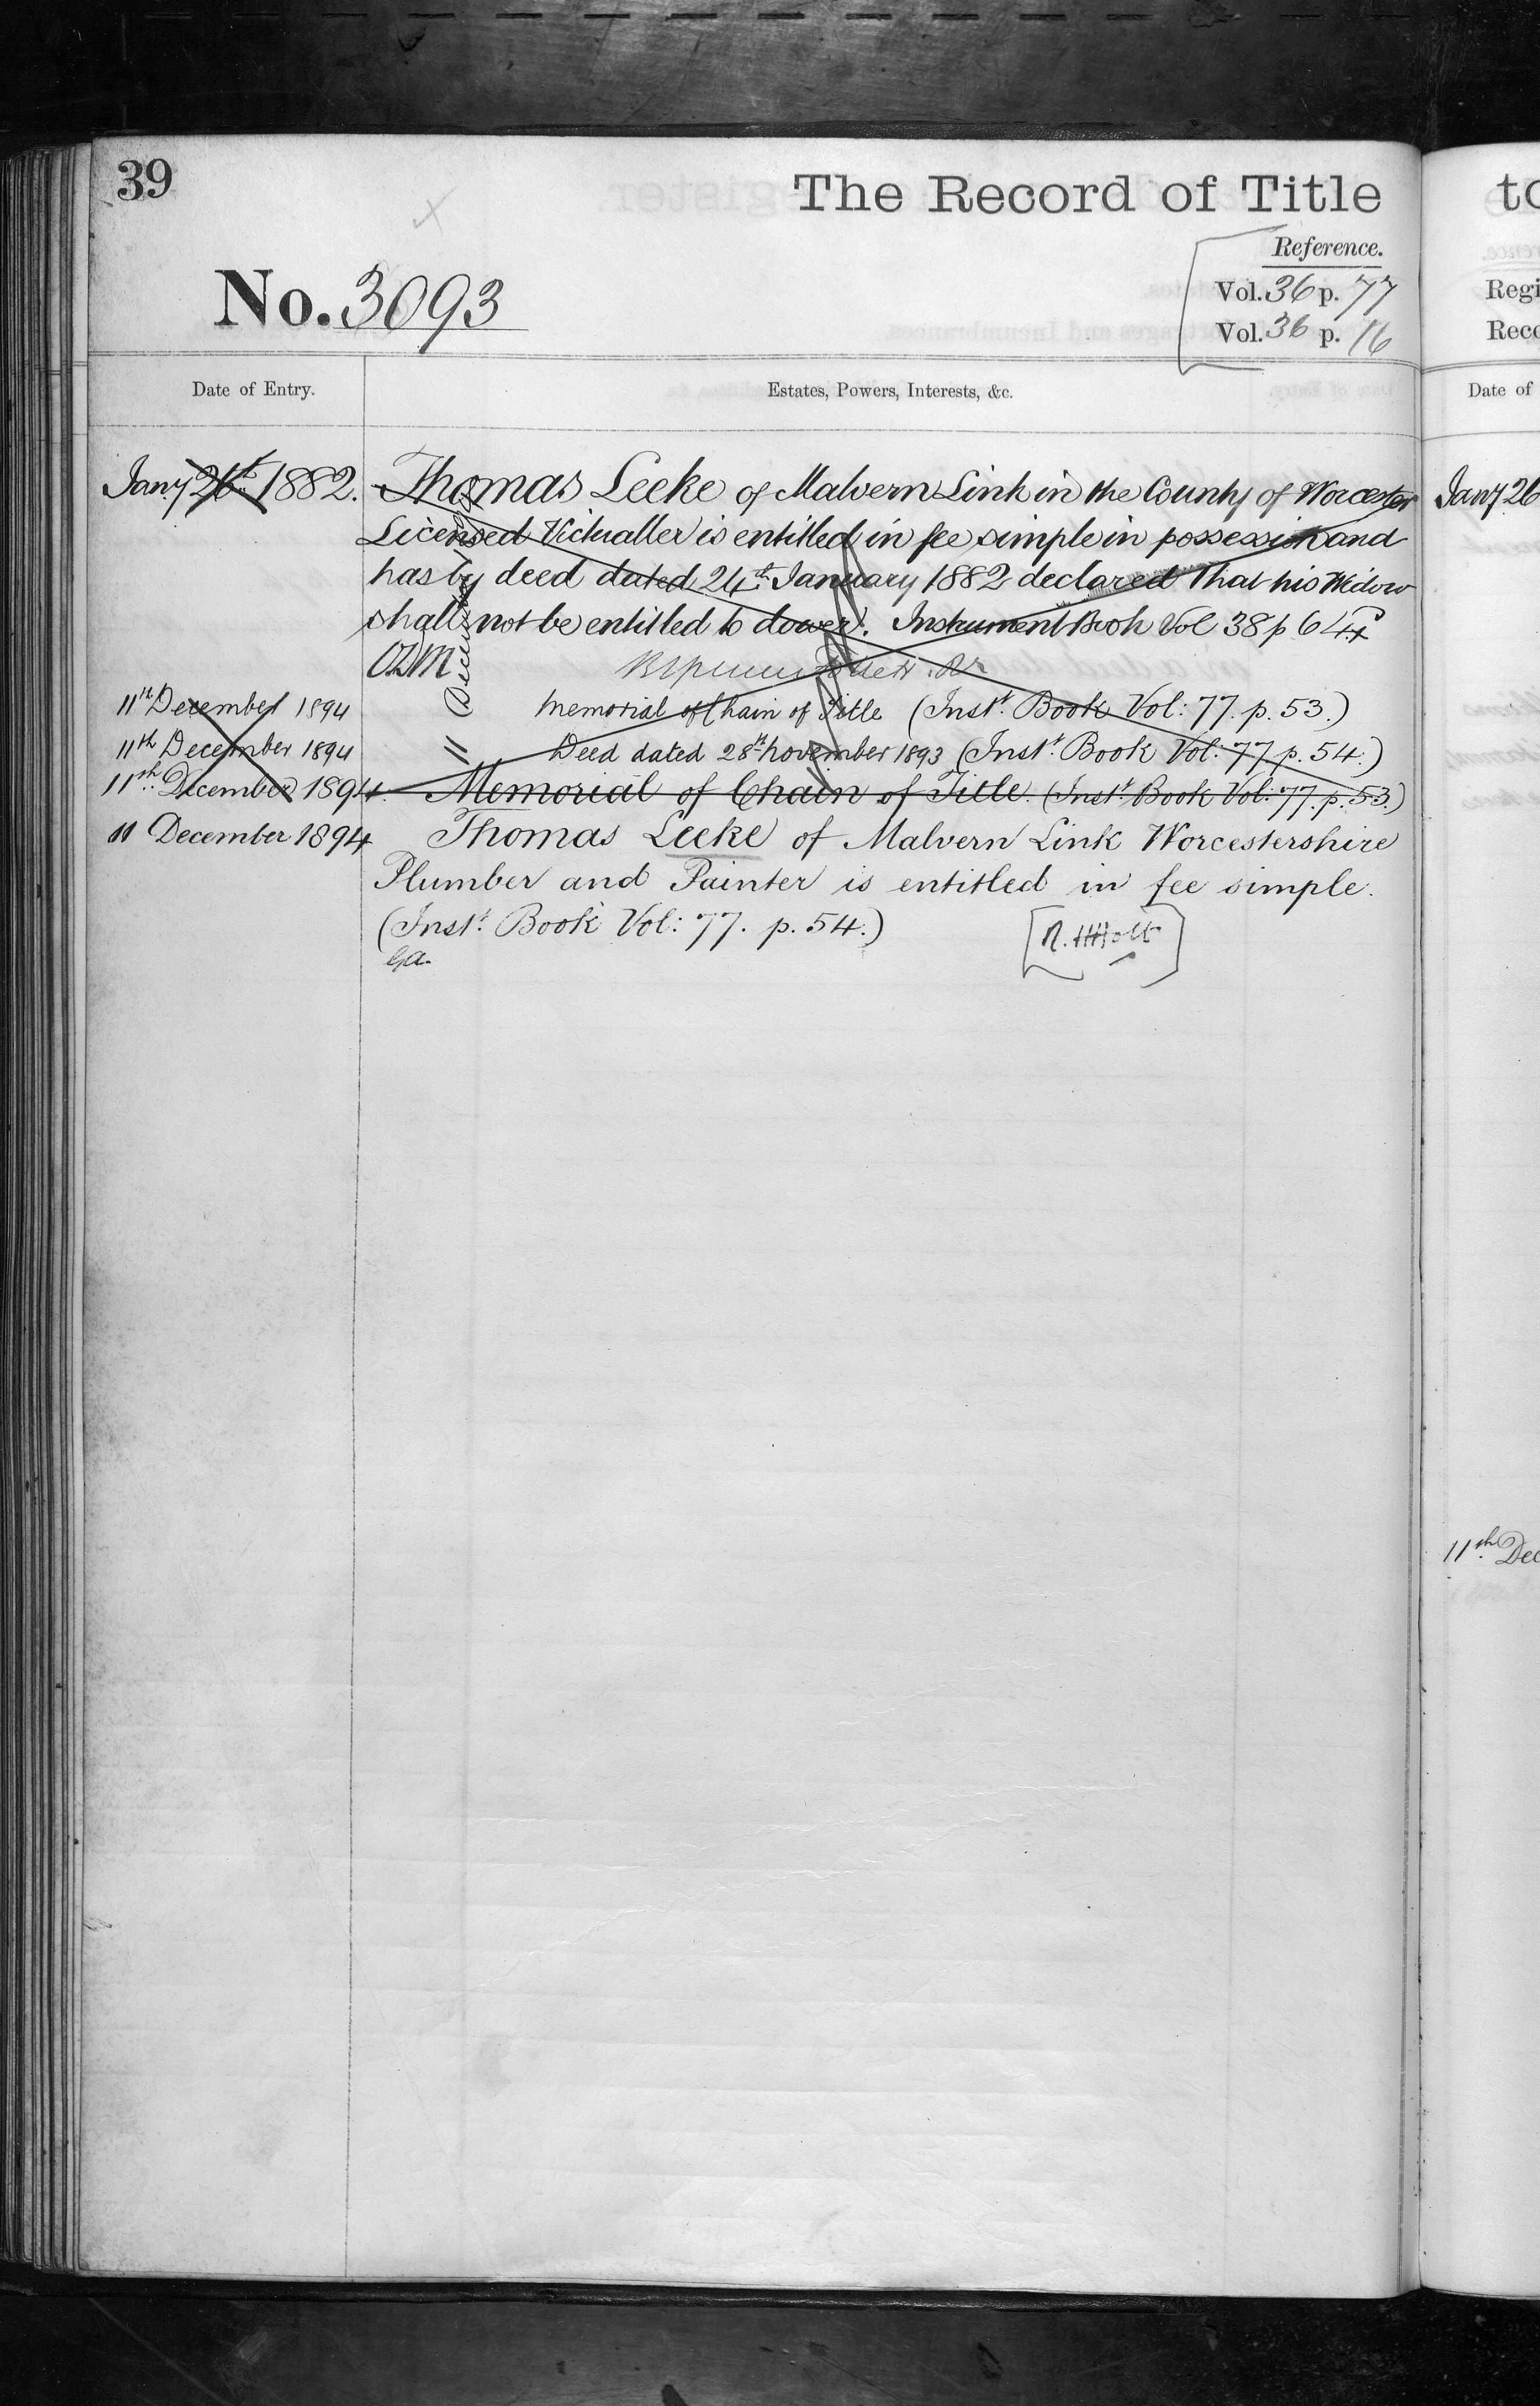 39
The Record of Title
Reference.
No. 3093
Vol. 36 p. 77
Vol. 36 p. 16
Date of Entry.
Estates, Powers, Interests, &c.
Jany 26th 1882. Thomas Leeke of Malvern Link in the County of Worcester
Licensed Victualler is entitled in fee simple in possession and
has by deed dated 24th January 1882 declared that his Widow
shall not be entitled to dower. Instrument Book Vol 38 p 64
11th December 1894 Memorial of Chain of Title (Inst. Book Vol: 77. p. 53.)
11th December 1894 " Deed dated 28th November 1893 (Inst. Book Vol: 77 p. 54.)
11th December 1894. Memorial of Chain of Title. (Inst. Book Vol: 77. p. 53.)
11 December 1894 Thomas Leeke of Malvern Link Worcestershire
Plumber and Painter is entitled in fee simple.
(Inst. Book Vol: 77. p. 54.)
to
Regi
Reco
Date of
Jany 26
11th Dec